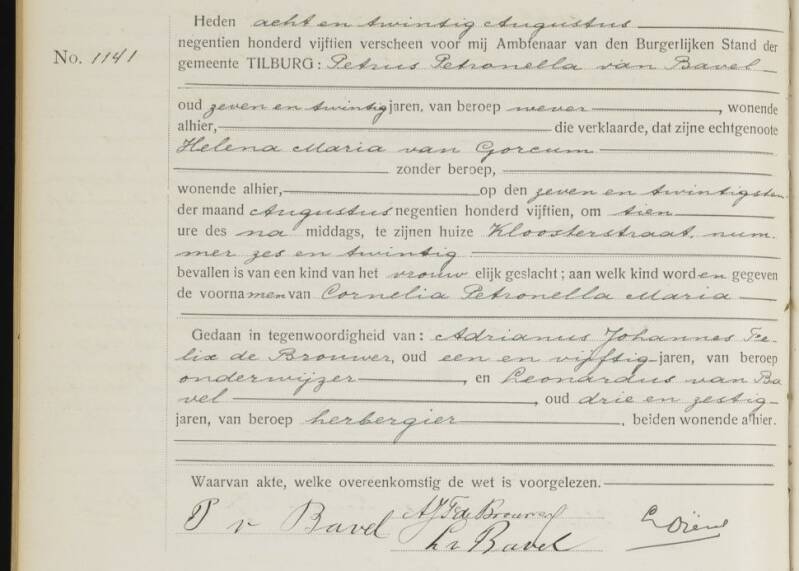 Heden acht en twintig Augustus
No. 1141
negentien honderd vijftien verscheen voor mij Ambtenaar van den Burgerlijken Stand der
gemeente TILBURG: Petrus Petronella van Bavel
oud zeven en twintig jaren, van beroep wever, wonende
alhier, die verklaarde, dat zijne echtgenoote
Helena Maria van Gorcum
zonder beroep,
wonende alhier, op den zeven en twintigsten
der maand Augustus negentien honderd vijftien, om tien
ure des na middags, te zijnen huize Kloosterstraat, num-
mer zes en twintig
bevallen is van een kind van het vrouw elijk geslacht; aan welk kind worden gegeven
de voornamen van Cornelia Petronella Maria
Gedaan in tegenwoordigheid van: Adrianus Johannes Fe-
lix de Brouwer, oud een en vijftig jaren, van beroep
onderwijzer, en Leonardus van Ba
vel, oud drie en zestig
jaren, van beroep herbergier, beiden wonende alhier.
Waarvan akte, welke overeenkomstig de wet is voorgelezen.
P v Bavel AJF de Brouwer
L v Bavel